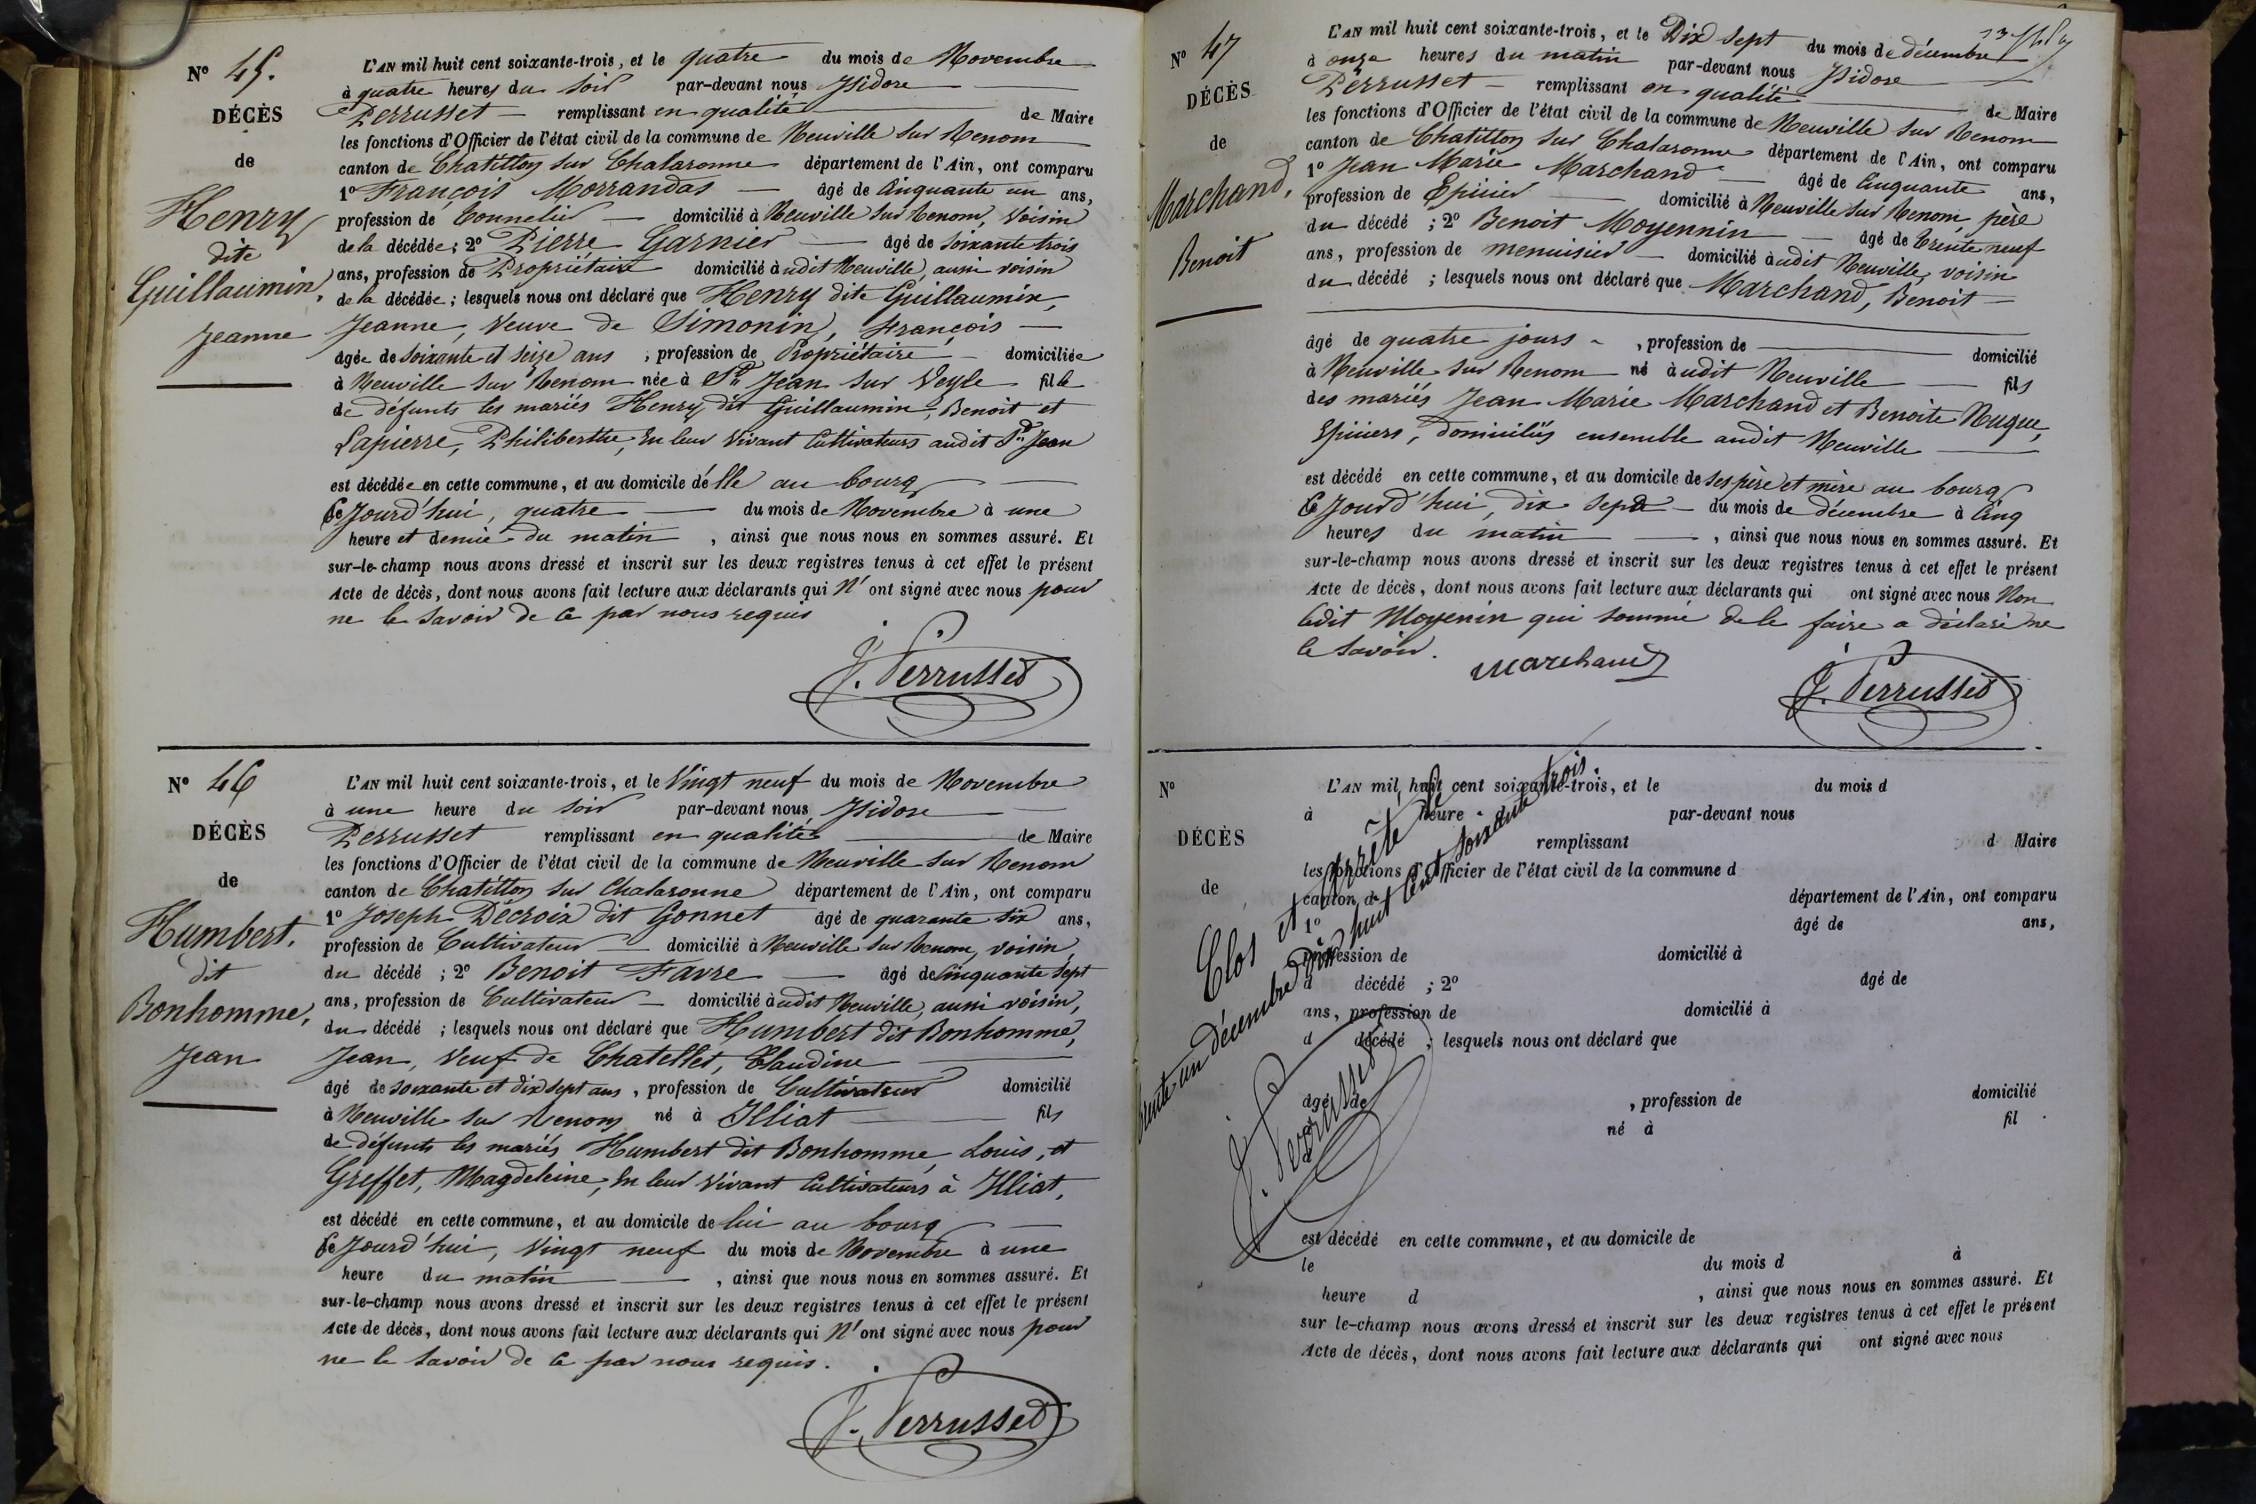 N° 45.
DÉCÈS
de
Henry
dite
Guillaumin,
Jeanne
L'AN mil huit cent soixante-trois, et le quatre du mois de Novembre
à quatre heures du soir par-devant nous Isidore
Perrusset remplissant en qualité de Maire
les fonctions d'Officier de l'état civil de la commune de Neuville sur Renom
canton de Chatillon sur Chalaronne département de l'Ain, ont comparu
1° François Morrandas âgé de Cinquante un ans,
profession de Tonnelier domicilié à Neuville sur Renom, Voisin
de la décédée; 2° Pierre Garnier âgé de soixante trois
ans, profession de Propriétaire domicilié àudit Neuville, aussi voisin
de la décédée; lesquels nous ont déclaré que Henry dite Guillaumin,
Jeanne, Veuve de Simonin, François
âgée de soixante et seize ans, profession de Propriétaire domiciliée
à Neuville sur Renom née à St Jean sur Veyle fille
de défunts les mariés Henry dit Guillaumin, Benoit et
Lapierre, Philiberthe, En leur Vivant Cultivateurs audit St Jean
est décédée en cette commune, et au domicile d'elle au bourg
Ce Jourd'hui, quatre du mois de Novembre à une
heure et demie du matin, ainsi que nous nous en sommes assuré. Et
sur-le-champ nous avons dressé et inscrit sur les deux registres tenus à cet effet le présent
Acte de décès, dont nous avons fait lecture aux déclarants qui N'ont signé avec nous pour
ne le savoir de ce par nous requis
J. Perrusset
N° 46
DÉCÈS
de
Humbert.
dit
Bonhomme,
Jean
L'AN mil huit cent soixante-trois, et le Vingt neuf du mois de Novembre
à une heure du soir par-devant nous Isidore
Perrusset remplissant en qualité de Maire
les fonctions d'Officier de l'état civil de la commune de Neuville sur Renom
canton de Chatillon sur Chalaronne département de l'Ain, ont comparu
1° Joseph Décroix dit Gonnet âgé de quarante six ans,
profession de Cultivateur domicilié à Neuville sur Renom, voisin
du décédé; 2° Benoit Favre âgé de Cinquante sept
ans, profession de Cultivateur domicilié àudit Neuville, aussi voisin,
du décédé; lesquels nous ont déclaré que Humbert dit Bonhomme,
Jean, Veuf de Chatellet, Claudine
âgé de soixante et dix sept ans, profession de Cultivateur domicilié
à Neuville sur Renom né à Illiat fils
de défunts les mariés Humbert dit Bonhomme, Louis, et
Greffet, Magdeleine, En leur Vivant Cultivateurs à Illiat,
est décédé en cette commune, et au domicile de lui au bourg
Ce Jourd'hui, Vingt neuf du mois de Novembre à une
heure du matin, ainsi que nous nous en sommes assuré. Et
sur-le-champ nous avons dressé et inscrit sur les deux registres tenus à cet effet le présent
Acte de décès, dont nous avons fait lecture aux déclarants qui N'ont signé avec nous pour
ne le savoir de ce par nous requis.
J. Perrusset
N° 47
DÉCÈS
de
Marchand,
Benoit
L'AN mil huit cent soixante-trois, et le Dix sept du mois de décembre
à onze heures du matin par-devant nous Isidore
Perrusset remplissant en qualité de Maire
les fonctions d'Officier de l'état civil de la commune de Neuville sur Renom
canton de Chatillon sur Chalaronne département de l'Ain, ont comparu
1° Jean Marie Marchand âgé de Cinquante ans,
profession de Epicier domicilié à Neuville sur Renom, père
du décédé; 2° Benoit Moyennin âgé de trente neuf
ans, profession de menuisier domicilié àudit Neuville, voisin
du décédé; lesquels nous ont déclaré que Marchand, Benoit
âgé de quatre jours, profession de domicilié
à Neuville sur Renom né àudit Neuville fils
des mariés Jean Marie Marchand et Benoite Nugue,
Epiciers, domiciliés ensemble audit Neuville
est décédé en cette commune, et au domicile de ses père et mère au bourg
Ce Jourd'hui, dix sept du mois de décembre à Cinq
heures du matin, ainsi que nous nous en sommes assuré. Et
sur-le-champ nous avons dressé et inscrit sur les deux registres tenus à cet effet le présent
Acte de décès, dont nous avons fait lecture aux déclarants qui ont signé avec nous Non
ledit Moyenin qui sommé de le faire a déclaré ne
le savoir.
Marchand
J. Perrusset
N°
DÉCÈS
de
L'AN mil huit cent soixante-trois, et le du mois d
à heure d par-devant nous
remplissant d Maire
les fonctions d'Officier de l'état civil de la commune d
canton de département de l'Ain, ont comparu
1° âgé de ans,
profession de domicilié à
d décédé; 2° âgé de
ans, profession de domicilié à
d décédé; lesquels nous ont déclaré que
âgé de, profession de domicilié
né à fil
est décédé en cette commune, et au domicile de
le du mois d à
heure d, ainsi que nous nous en sommes assuré. Et
sur le-champ nous avons dressé et inscrit sur les deux registres tenus à cet effet le présent
Acte de décès, dont nous avons fait lecture aux déclarants qui ont signé avec nous
Clos et Arrêté le
trente un décembre dix huit Cent soixante trois.
J. Perrusset